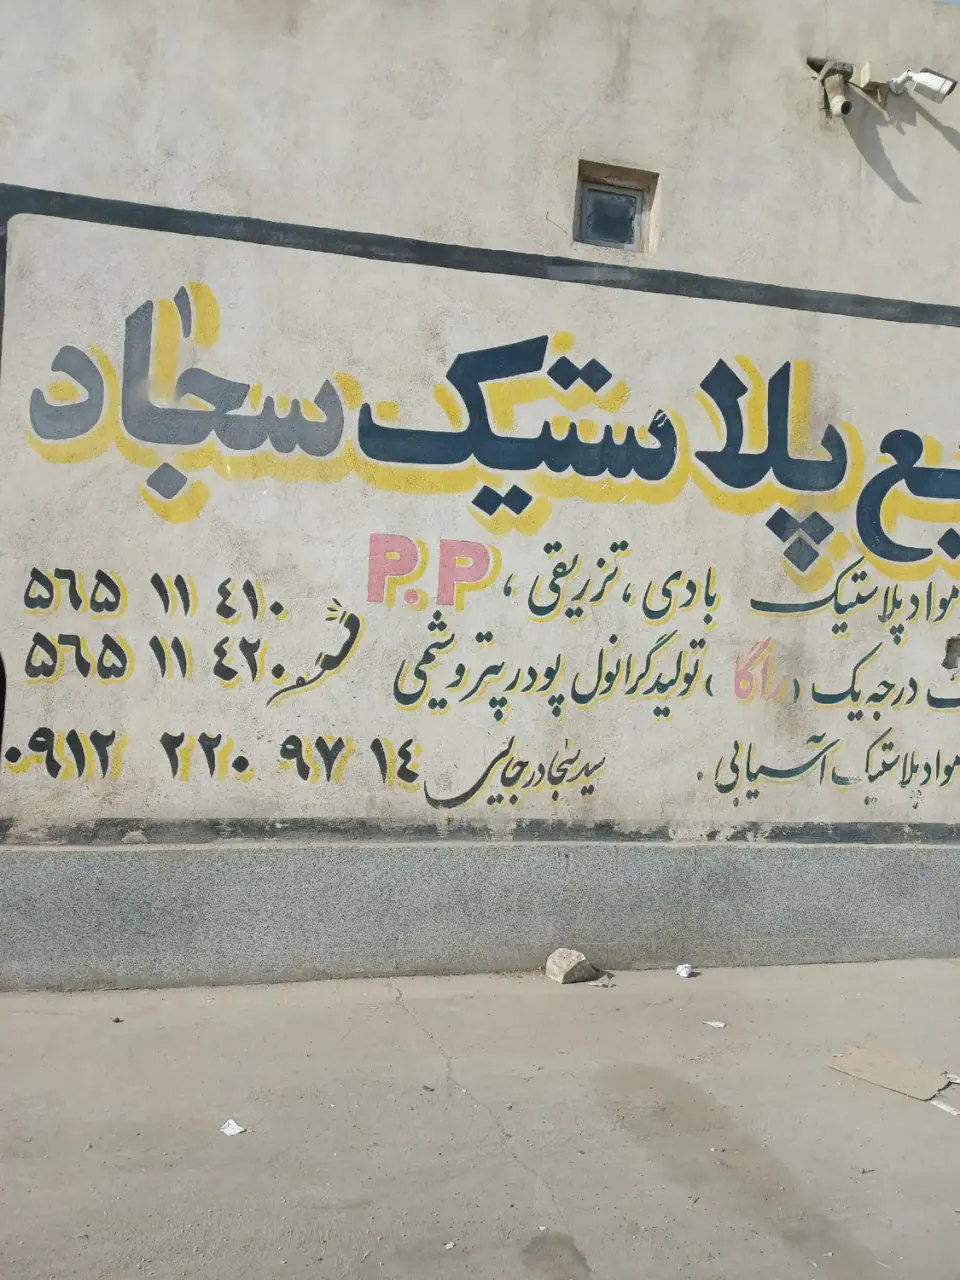 پلاستیک سجاد
مواد پلاستیک بادی ، تزریقی ، P.P
۵۶۵ ۱۱ ۴۱۰
درجه یک (راگا) ، تولید گرانول پودر پتروشمی
۵۶۵ ۱۱ ۴۲۰
مواد پلاستیک آسیابی .
سید سجاد رجایی ۰۹۱۲ ۲۲۰ ۹۷ ۱۴